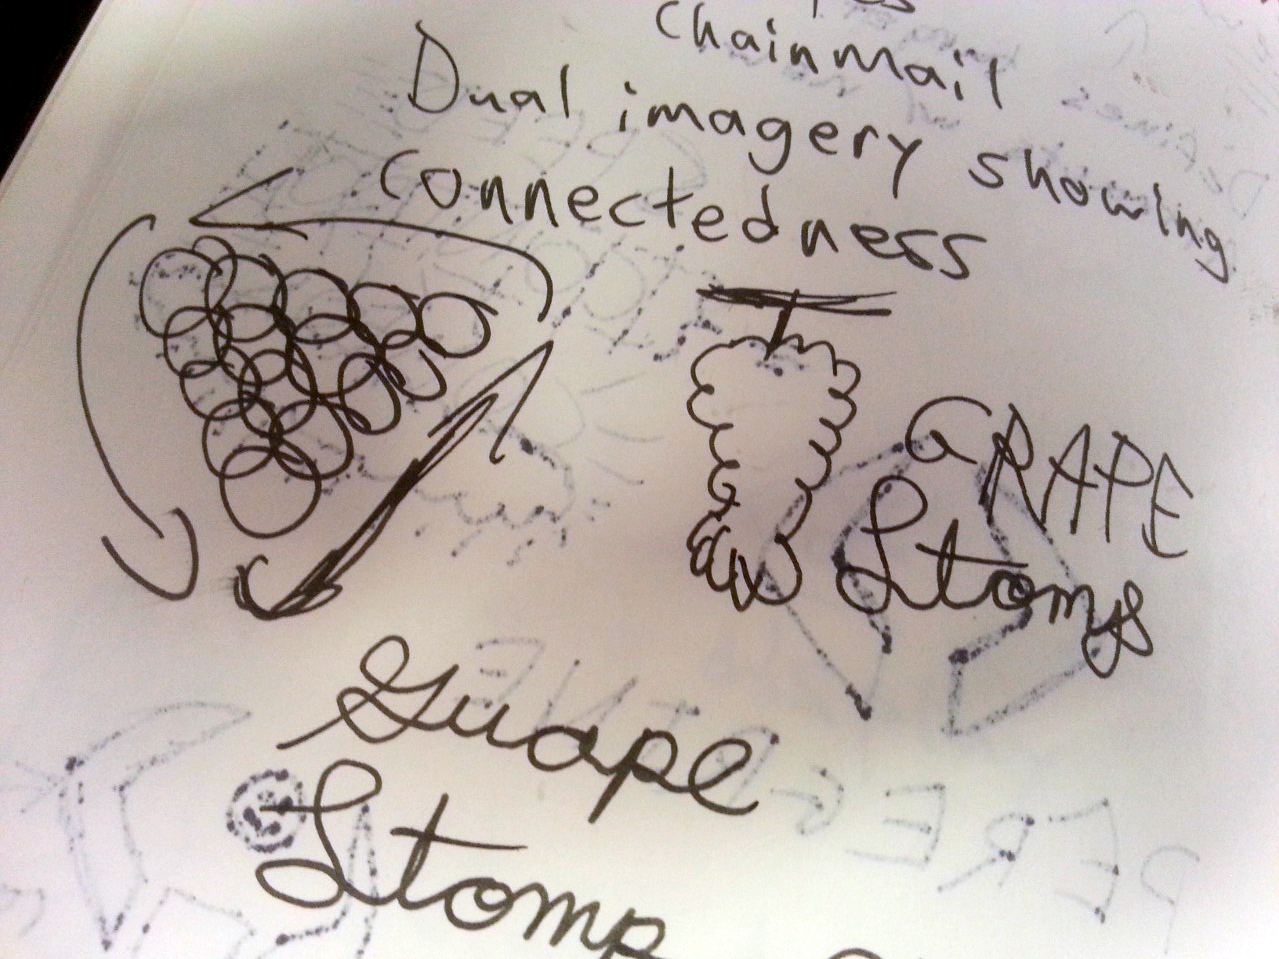 chainmail
Dual imagery showing
connectedness
GRAPE
Stomps
Guape
Stomp